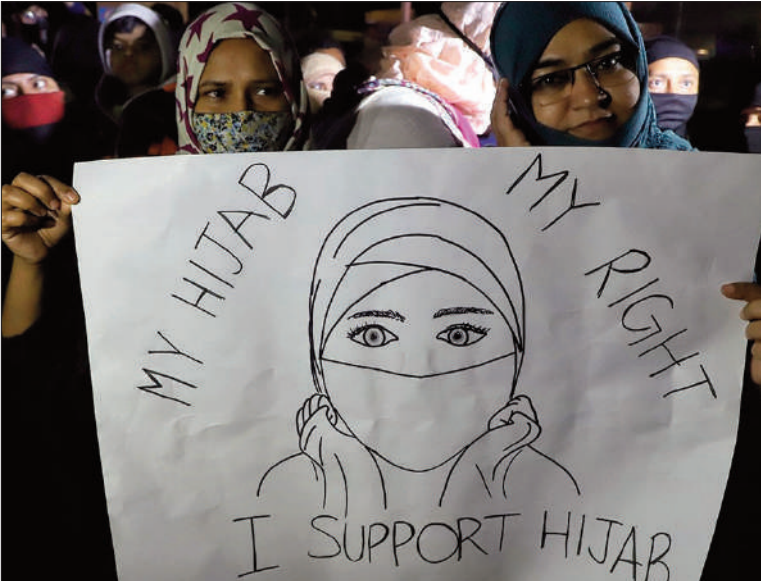 MY HIJAB
MY RIGHT
I SUPPORT HIJAB